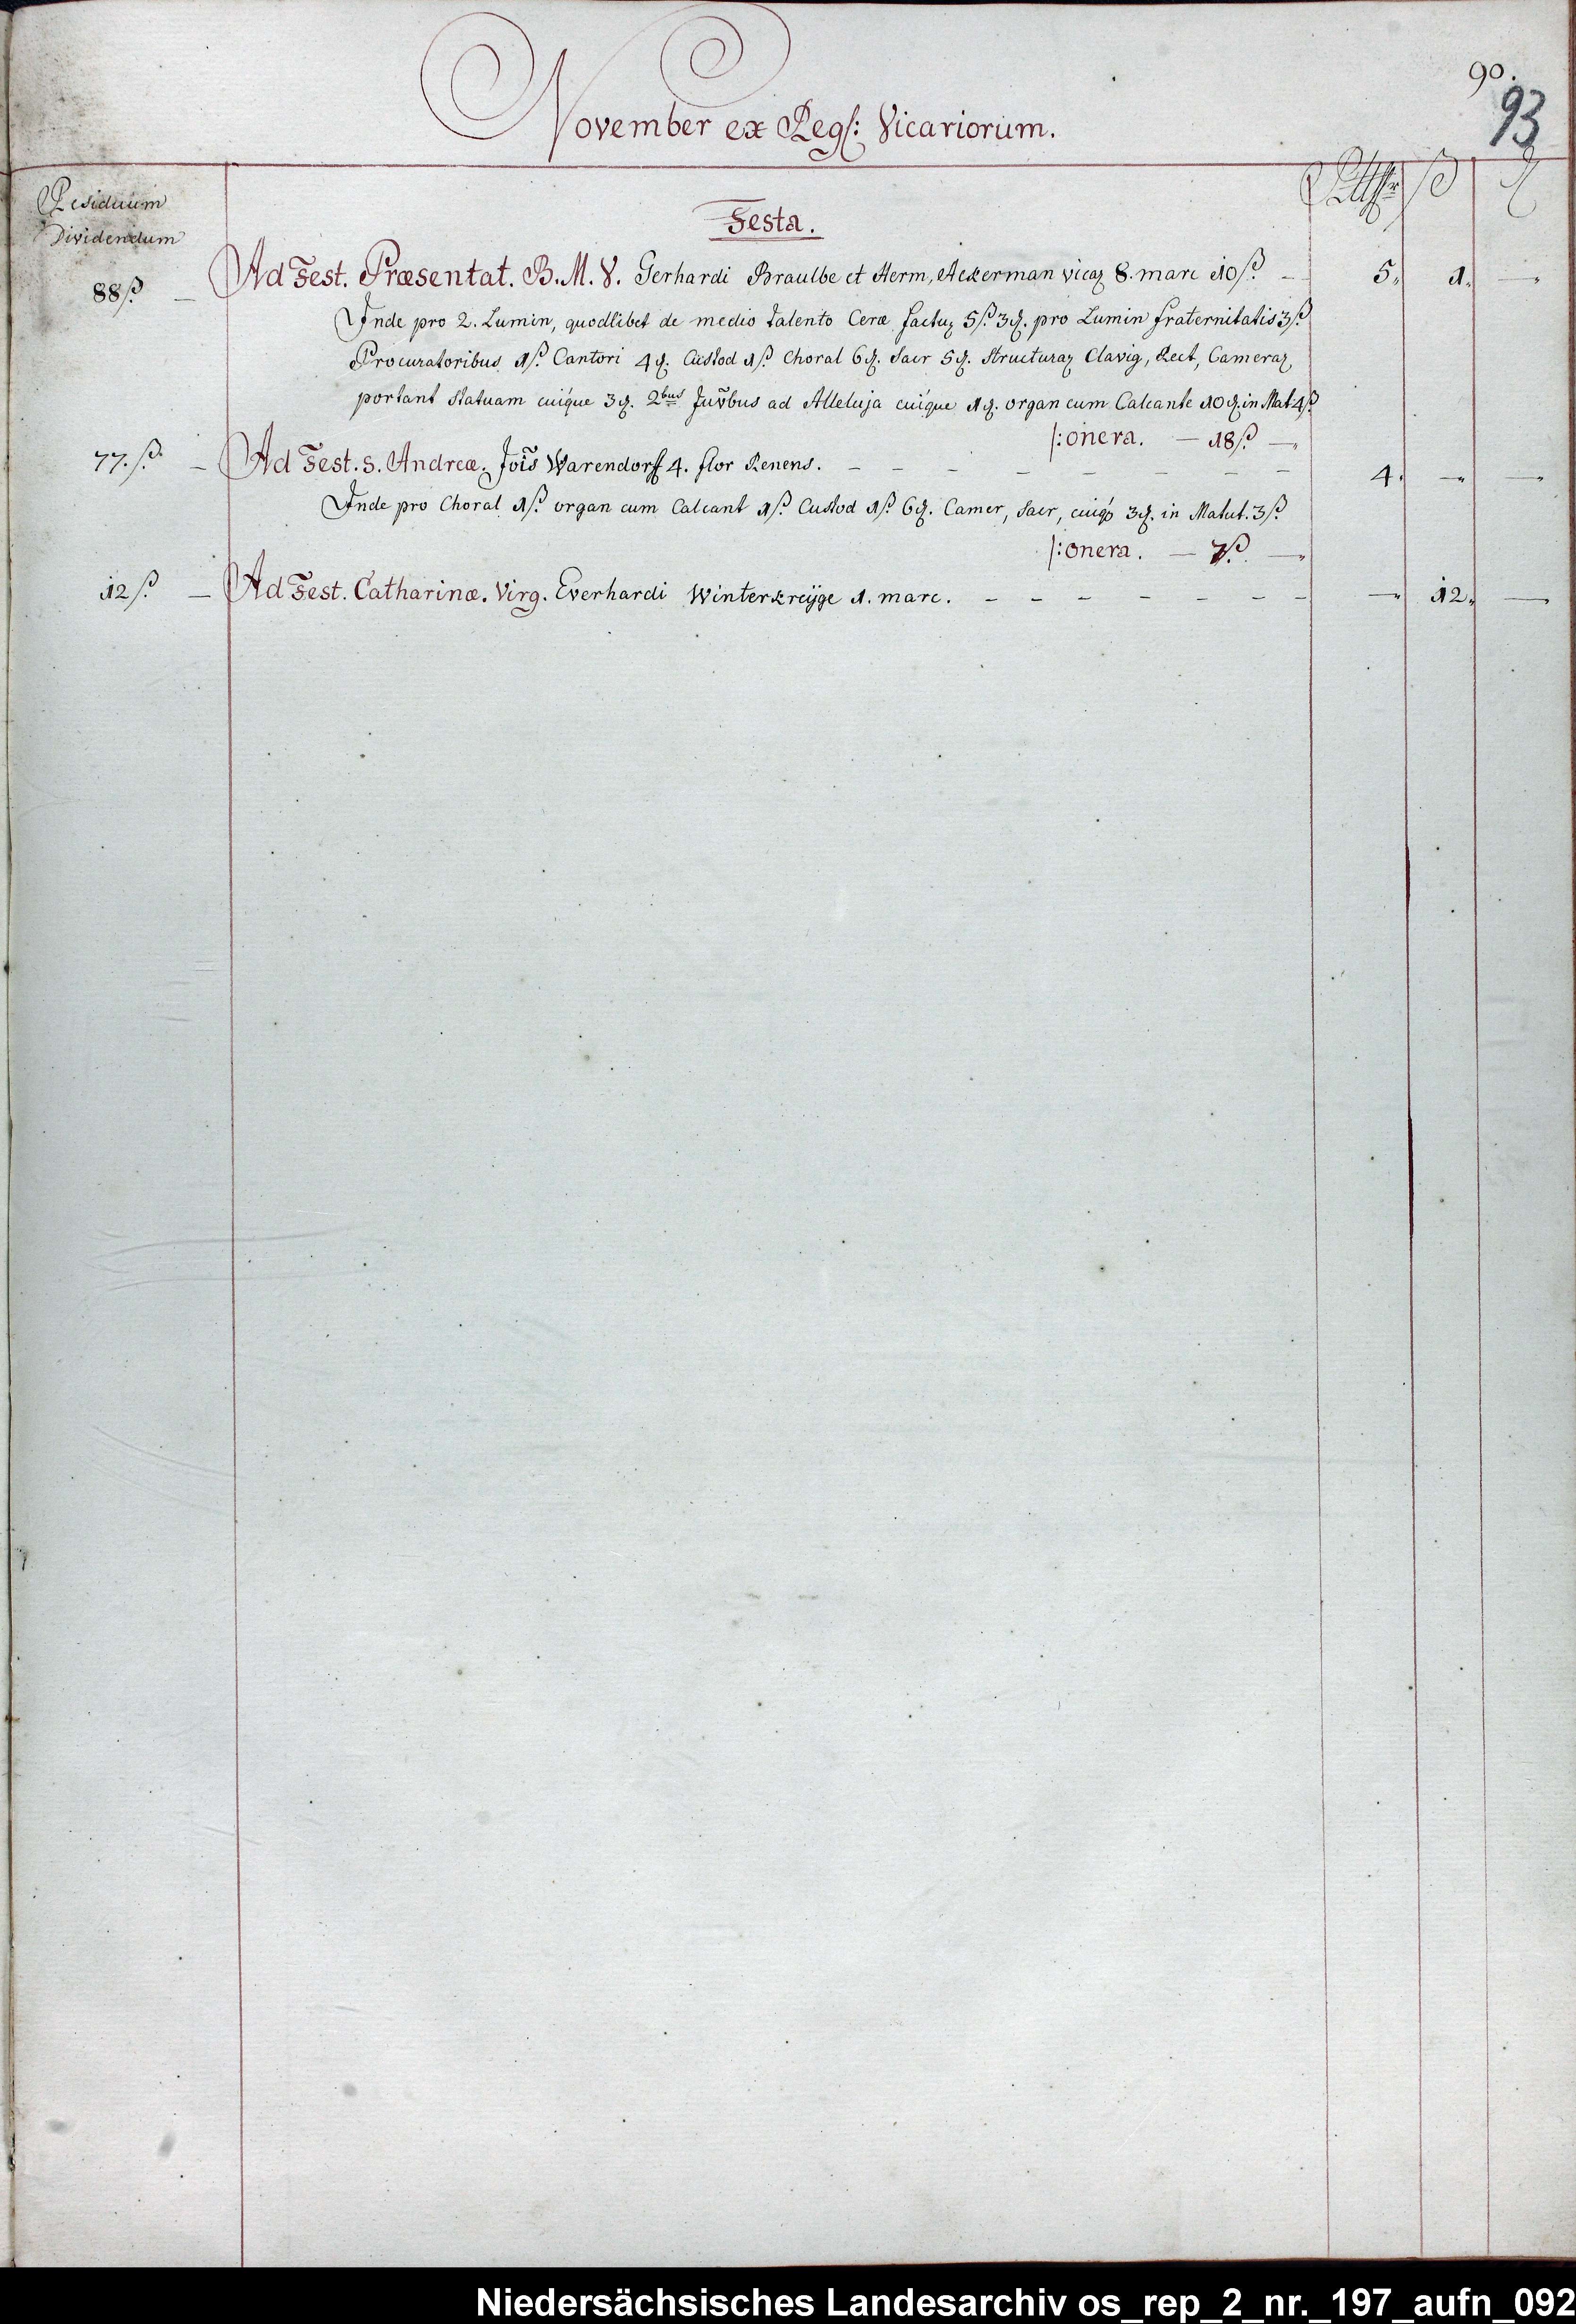 90.
93
November ex Regs: Vicariorum.
Residuum
Dividendum
Rthlr ß ₰
Festa.
88ß. — Ad Fest. Præsentat. B. M. V. Gerhardi Braulbe et Herm, Ackerman vicaȝ 8. marc 10ß. — 5„ 1„ —„
Inde pro 2. Lumin, quodlibet de medio talento Ceræ factuȝ 5ß. 3₰. pro Lumin fraternitatis 3ß.
Procuratoribus 1ß. Cantori 4₰. Custod 1ß. Choral 6₰. Sacr 5₰. Structuraȝ Clavig, Rect, Cameraȝ
portant statuam cuique 3₰. 2bus Juv̄bus ad Alleluja cuique 1₰. organ cum Calcante 10₰. in Mat. 4ß.
/: onera. — 18ß —„
77.ß. — Ad Fest. S. Andreæ. Jois̃ Warendorff 4. flor Renens. — — — — — — — 4„ —„ —„
Inde pro Choral 1ß. organ cum Calcant 1ß. Custod 1ß. 6₰. Camer, Sacr, cuiqȝ 3₰. in Matut. 3ß.
/: onera. — 7ß. —„
12ß. — Ad Fest. Catharinæ. Virg. Everhardi Winterkreÿge 1. marc. — — — — — — — —„ 12„ —„
Niedersächsisches Landesarchiv os_rep_2_nr._197_aufn_092